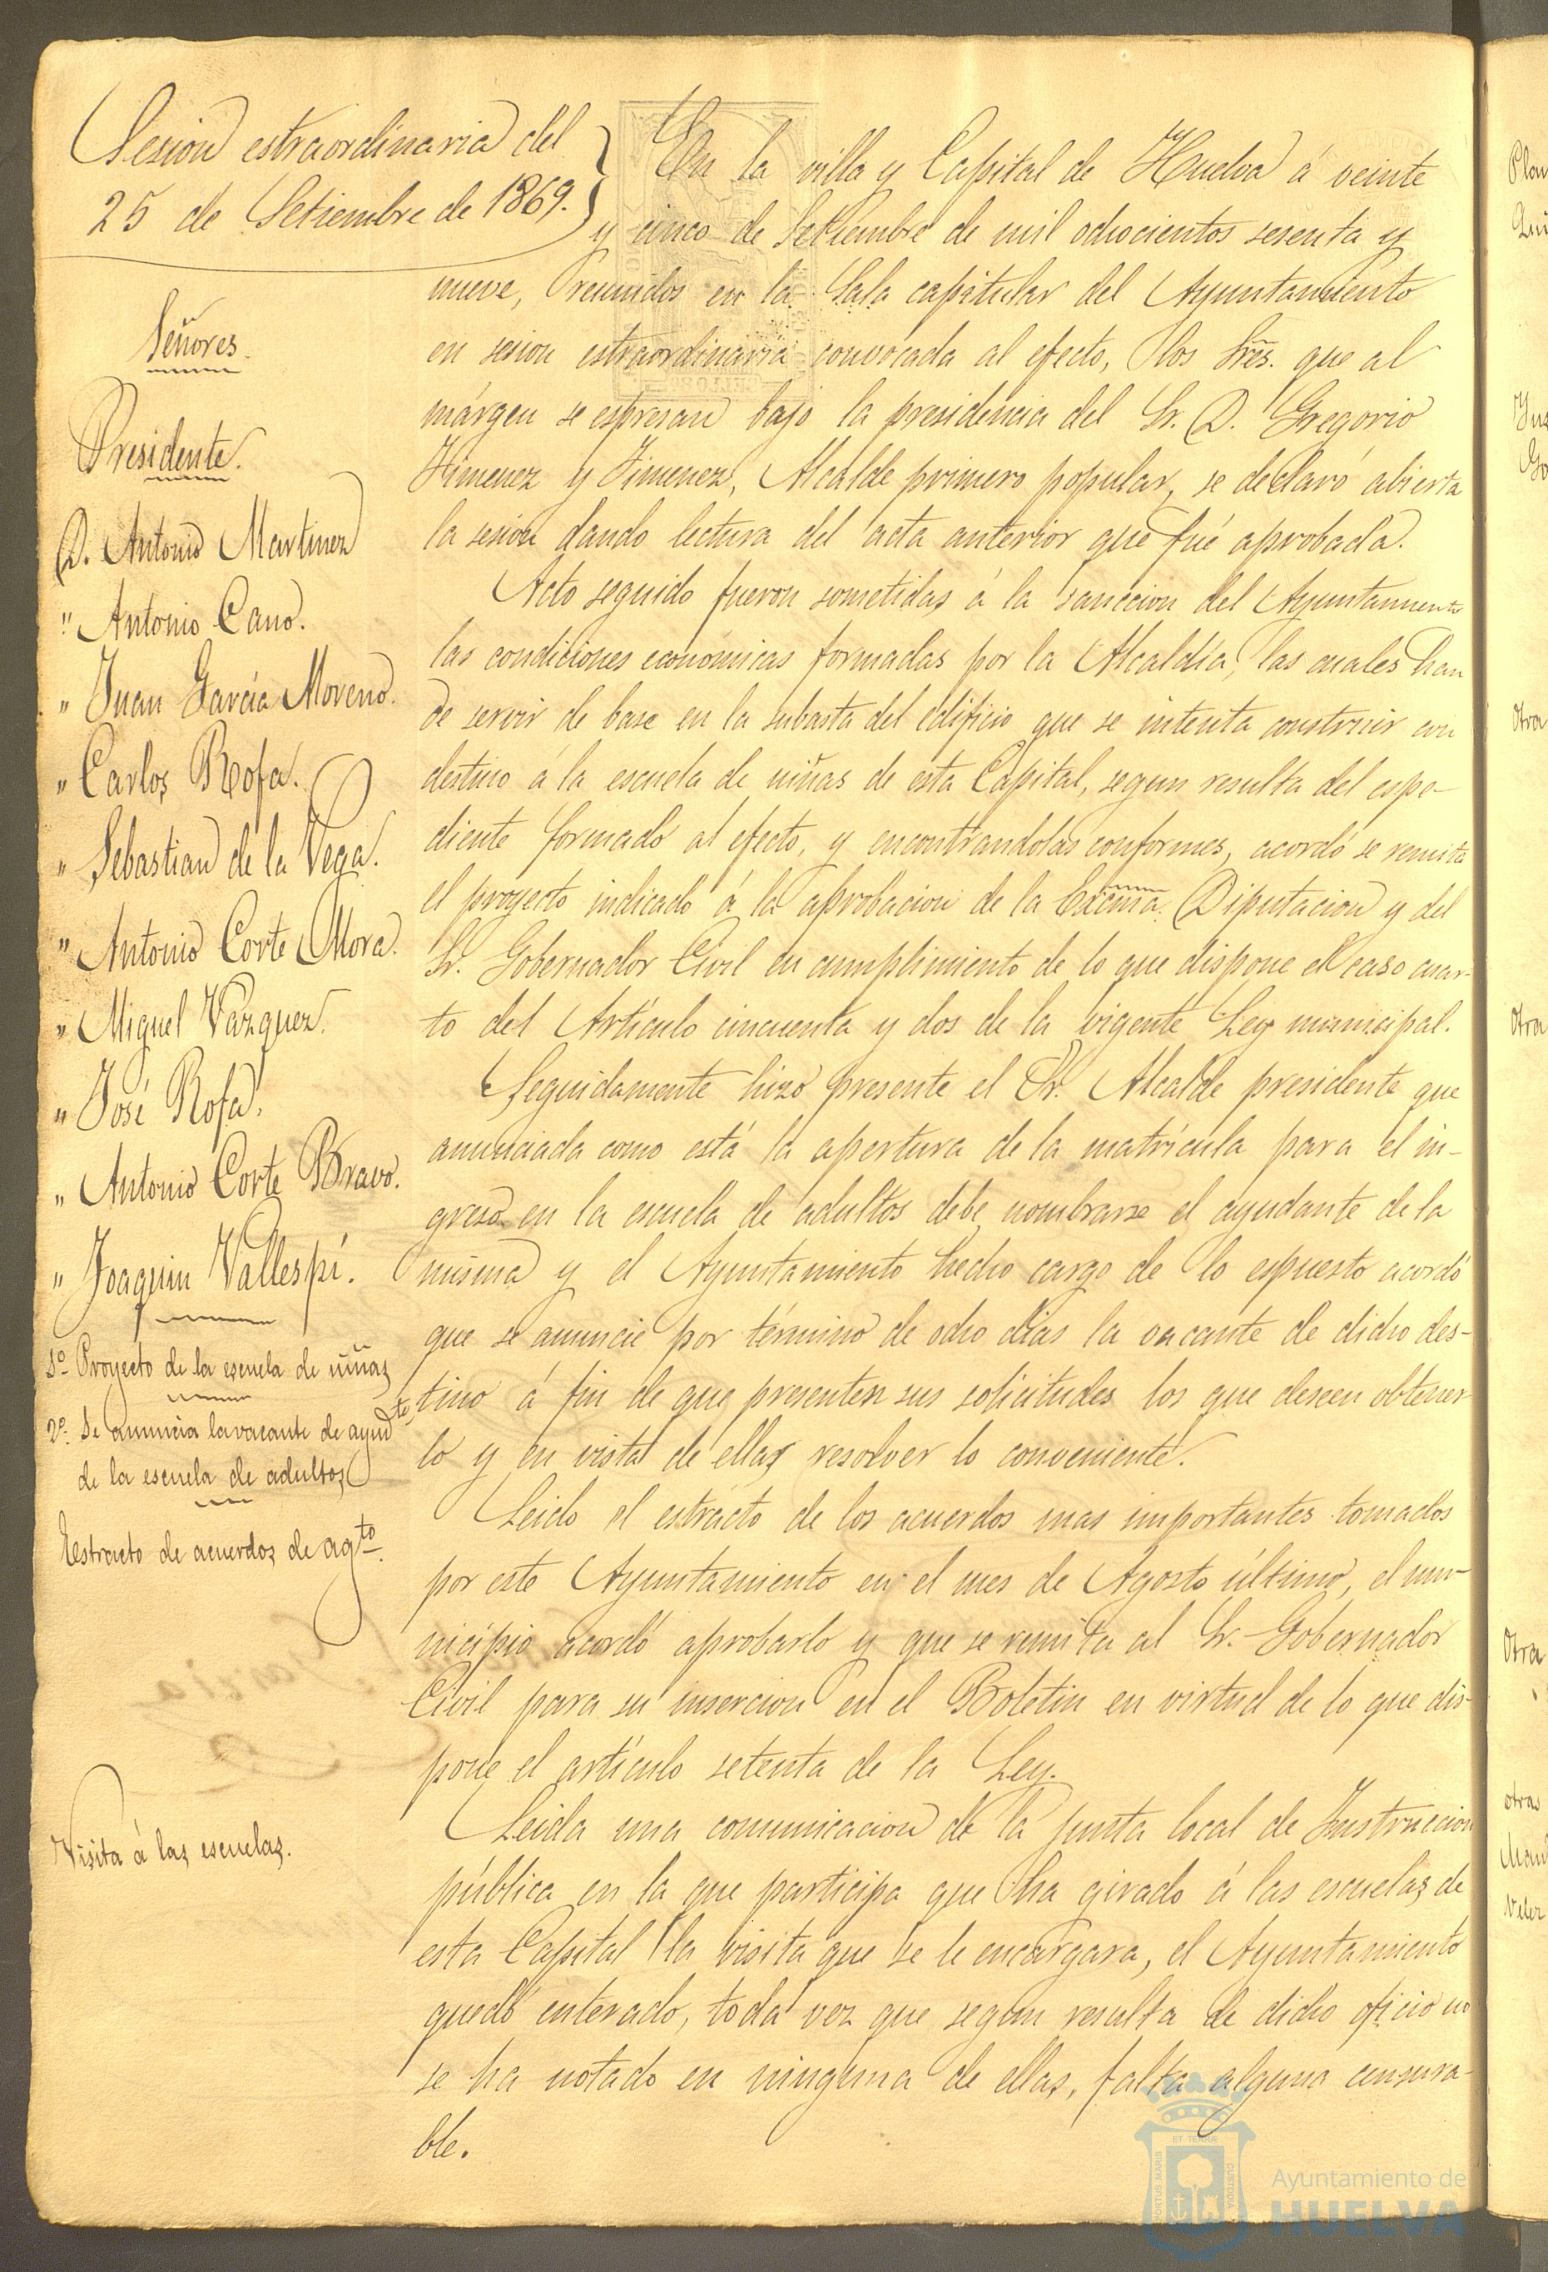 Sesion estraordinaria del
25 de Setiembre de 1869.
Señores.
Presidente.
D. Antonio Martinez
" Antonio Cano.
" Juan Garcia Moreno.
" Carlos Rofa.
" Sebastian de la Vega.
" Antonio Corte Mora.
" Miguel Vazquez.
" José Rofa.
" Antonio Corte Bravo.
" Joaquin Vallespí.
1º Proyecto de la escuela de niñas
2º. Se anuncia la vacante de ayudte
de la escuela de adultos
Estracto de acuerdos de agto.
Visita á las escuelas.
En la villa y Capital de Huelva á veinte
y cinco de Setiembre de mil ochocientos sesenta y
nueve, reunidos en la Sala capitular del Ayuntamiento
en sesion estraordinaria convocada al efecto, los Sres. que al
márgen se espresan bajo la presidencia del Sr. D. Gregorio
Jimenez y Jimenez, Alcalde primero popular, se declaró abierta
la sesion dando lectura del acta anterior que fué aprobada.
Acto seguido fueron sometidas á la sanccion del Ayuntamiento
las condiciones económicas formadas por la Alcaldía, las cuales han
de servir de base en la subasta del edificio que se intenta construir con
destino á la escuela de niñas de esta Capital, segun resulta del espe-
diente formado al efecto, y encontrandolas conformes, acordó se remita
el proyecto indicado á la aprobacion de la Excma. Diputacion y del
Sr. Gobernador Civil en cumplimiento de lo que dispone el caso cuar-
to del Artículo cincuenta y dos de la vigente Ley municipal.
Seguidamente hizo presente el Sr. Alcalde presidente que
anunciada como está la apertura de la matrícula para el in-
greso en la escuela de adultos debe nombrarse el ayudante de la
misma y el Ayuntamiento hecho cargo de lo espuesto acordó
que se anuncie por término de ocho dias la vacante de dicho des-
tino á fin de que presenten sus solicitudes los que deseen obtener-
lo y en vista de ellas resolver lo conveniente.
Leido el estracto de los acuerdos mas importantes tomados
por este Ayuntamiento en el mes de Agosto último, el mu-
nicipio acordó aprobarlo y que se remita al Sr. Gobernador
Civil para su insercion en el Boletin en virtud de lo que dis-
pone el artículo setenta de la Ley.
Leida una comunicacion de la junta local de Instruccion
pública en la que participa que ha girado á las escuelas de
esta Capital la visita que se le encargara, el Ayuntamiento
quedó enterado, toda vez que segun resulta de dicho oficio no
se ha notado en ninguna de ellas, falta alguna censura-
ble.
Otra
Otra
Otra
otras
PORTUS MARIS
ET TERRÆ
CUSTODIA
Ayuntamiento de
HUELVA